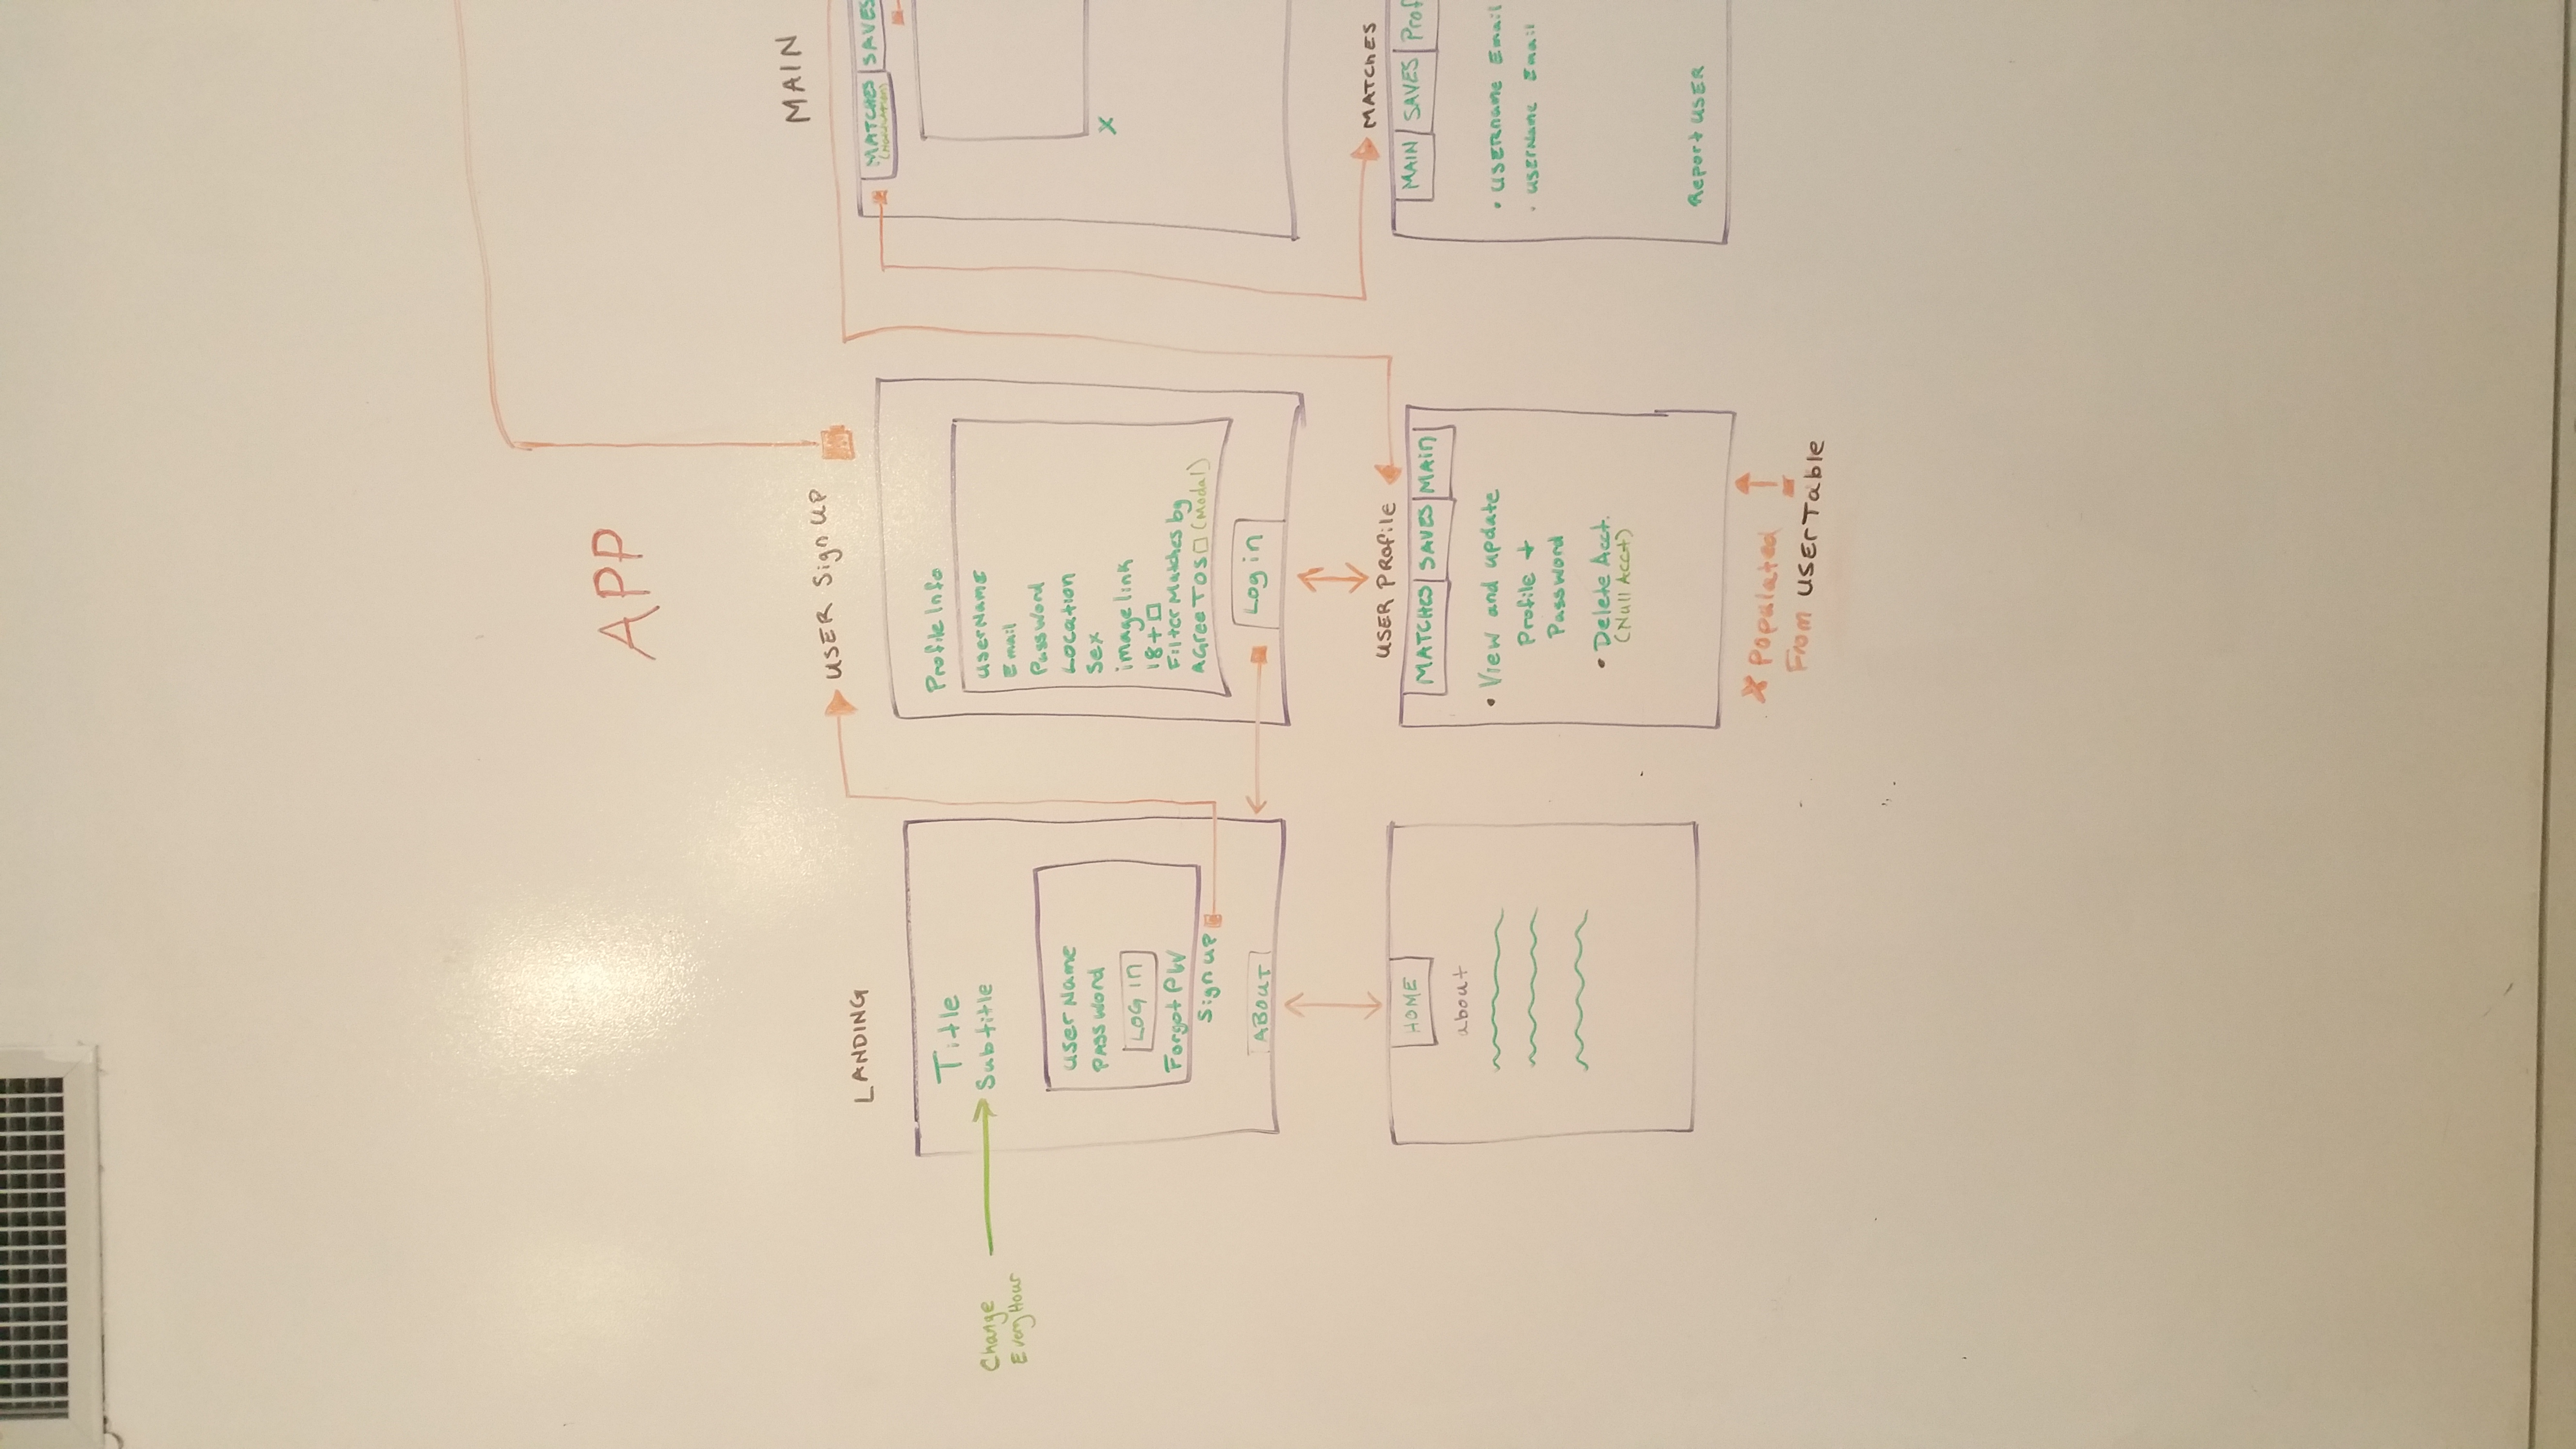 APP
LANDING
Title
Subtitle
Change
Every Hour
User Name
Password
LOG IN
Forgot PW
Sign up
ABOUT
HOME
about
USER Sign UP
Profile Info
UserName
Email
Password
Location
Sex
image link
18+
Filter Matches by
AGree TOS (Modal)
Log in
USER PROFile
MATCHES SAVES MAIN
• View and update
Profile +
Password
• Delete Acct.
(Null Acct)
X Populated
From USErTable
MAIN
MATCHES SAVES
X
MATCHES
MAIN SAVES Prof
• USERname Email
• USErName Email
Report USER